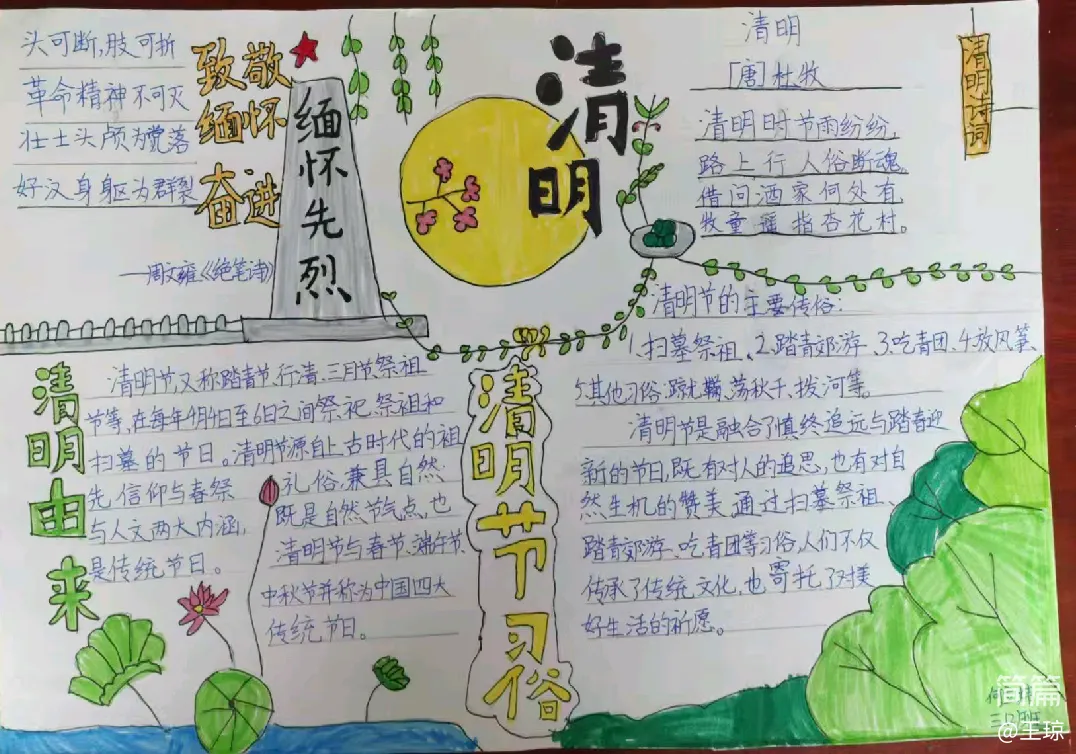 头可断,肢可折
革命精神不可灭
壮士头颅为党落
好汉身躯为群裂
——周文雍《绝笔诗》
致敬
缅怀
奋进
缅怀先烈
清明
清明
「唐」杜牧
清明时节雨纷纷,
路上行人俗断魂
借问酒家何处有
牧童遥指杏花村。
清明诗词
清明节的主要传俗:
1、扫墓祭祖、2、踏青郊游 3、吃青团、4.放风筝、
5、其他习俗,蹴鞠、荡秋千、拔河等。
清明节是融合了慎终追远与踏春迎
新的节日,既有对人的追思,也有对自
然生机的赞美,通过扫墓祭祖、
踏青郊游、吃青团等习俗,人们不仅
传承了传统文化,也寄托了对美
好生活的祈愿。
清明节习俗
清明由来
清明节,又称踏青节,行清、三月节祭祖
节等,在每年4月4日至6日之间祭祀、祭祖和
扫墓的节日。清明节源自上古时代的祖
先,信仰与春祭
礼俗,兼具自然
与人文两大内涵,
既是自然节气点,也
是传统节日。
清明节与春节、端午节
中秋节并称为中国四大
传统节日。
简篇
@王琼